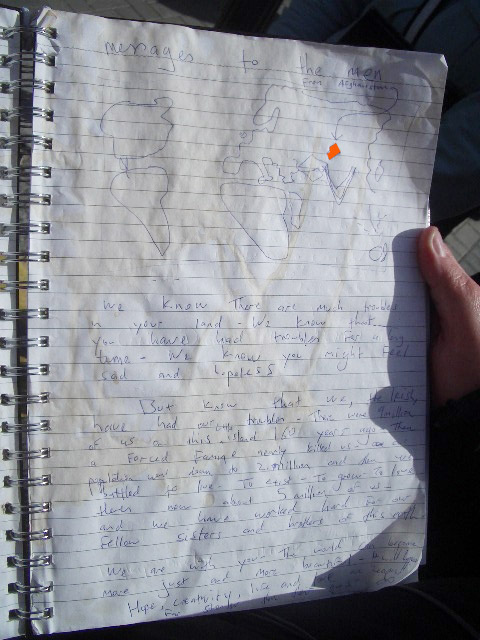 messages to the men
From Afghanistan
We know There are much troubles
in your land - We know that
you have had troubles for a long
time - We know you might feel
sad and hopeless
But know that we, the Irish,
have had our troubles - There were 9 million
of us on this island 160 years ago - Then
a Forced Famine nearly killed us -
population went down to 2 million and
battled to live - To exist - To grow To
there now about 5 million of us -
and we have worked hard for our
fellow sisters and brothers of this earth
We are with you. The world will become
more just and more beautiful -
Hope, creativity, love and